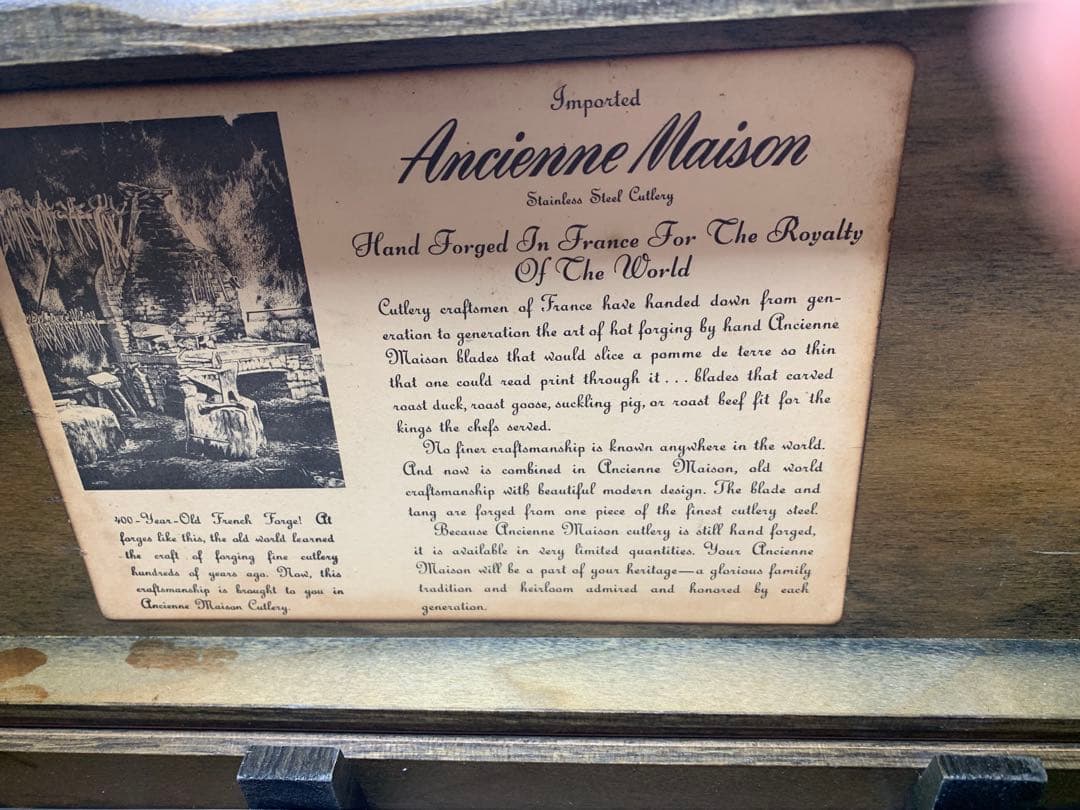 Imported
Ancienne Maison
Stainless Steel Cutlery
Hand Forged In France For The Royalty
Of The World
Cutlery craftsmen of France have handed down from gen-
eration to generation the art of hot forging by hand Ancienne
Maison blades that would slice a pomme de terre so thin
that one could read print through it . . . blades that carved
roast duck, roast goose, suckling pig, or roast beef fit for the
kings the chefs served.
No finer craftsmanship is known anywhere in the world.
And now is combined in Ancienne Maison, old world
craftsmanship with beautiful modern design. The blade and
tang are forged from one piece of the finest cutlery steel.
Because Ancienne Maison cutlery is still hand forged,
it is available in very limited quantities. Your Ancienne
Maison will be a part of your heritage—a glorious family
tradition and heirloom admired and honored by each
generation.
400-Year-Old French Forge! At
forges like this, the old world learned
the craft of forging fine cutlery
hundreds of years ago. Now, this
craftsmanship is brought to you in
Ancienne Maison Cutlery.